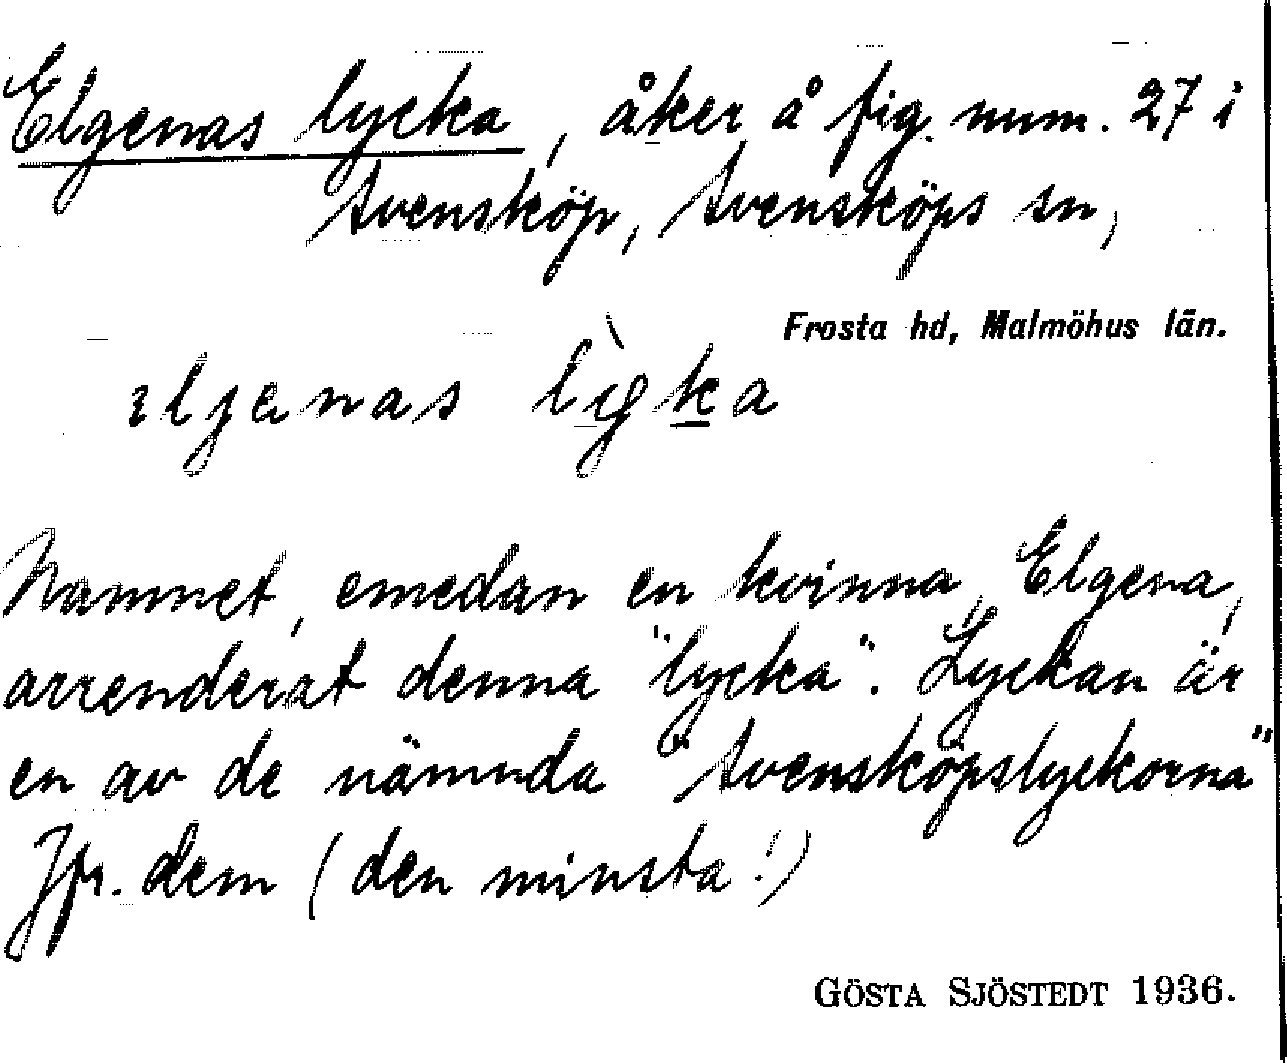 Elgenas lycka, åker å fig. num. 27 i
Svensköp, Svensköps sn,
Frosta hd, Malmöhus län.
Namnet, emedan en kvinna, Elgena,
arrenderat denna "lycka". Lyckan är
en av de nämnda "Svensköpslyckorna"
Jfr. dem (den minsta!)
GÖSTA SJÖSTEDT 1936.